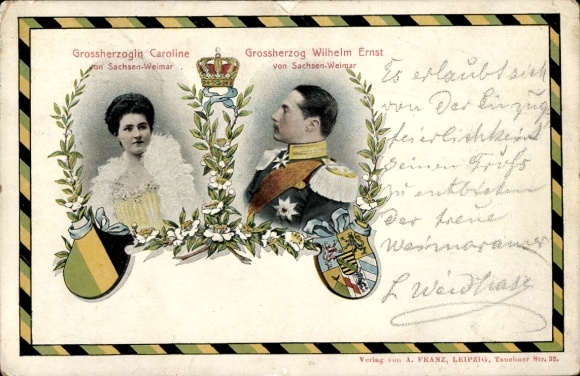 Grossherzogin Caroline
von Sachsen-Weimar.
Grossherzog Wilhelm Ernst
von Sachsen-Weimar
Es erlaubt sich
von der Einzug
feierlichkeit
seinen Gruß
zu entbieten
der treue
Weimaraner
L Weidhase
Verlag von A. FRANZ, LEIPZIG, Tauchaer Str. 32.